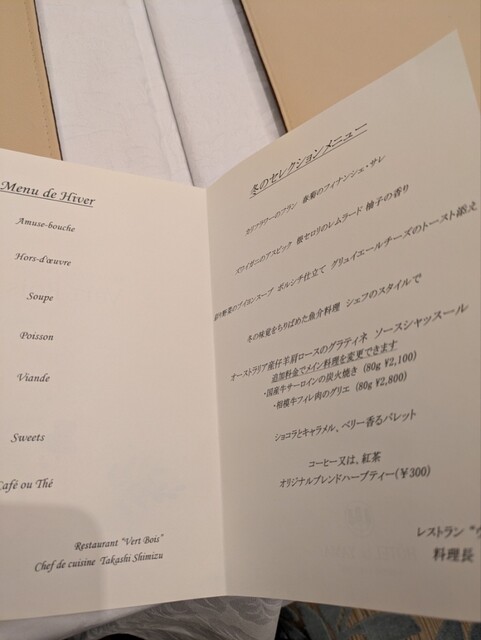 Menu de Hiver
Amuse-bouche
Hors-d'œuvre
Soupe
Poisson
Viande
Sweets
Café ou Thé
Restaurant "Vert Bois"
Chef de cuisine Takashi Shimizu
冬のセレクションメニュー
カリフラワーのフラン 春菊のフィナンシェ・サレ
ズワイガニのアスピック 根セロリのレムラード 柚子の香り
野菜のブイヨンスープ ボルシチ仕立て グリュイエールチーズのトースト添え
冬の味覚をちりばめた魚介料理 シェフのスタイルで
オーストラリア産仔羊肩ロースのグラティネ ソースシャッスール
追加料金でメイン料理を変更できます
・国産牛サーロインの炭火焼き (80g ¥2,100)
・相模牛フィレ肉のグリエ (80g ¥2,800)
ショコラとキャラメル、ベリー香るパレット
コーヒー又は、紅茶
オリジナルブレンドハーブティー(¥300)
レストラン "ヴ
料理長